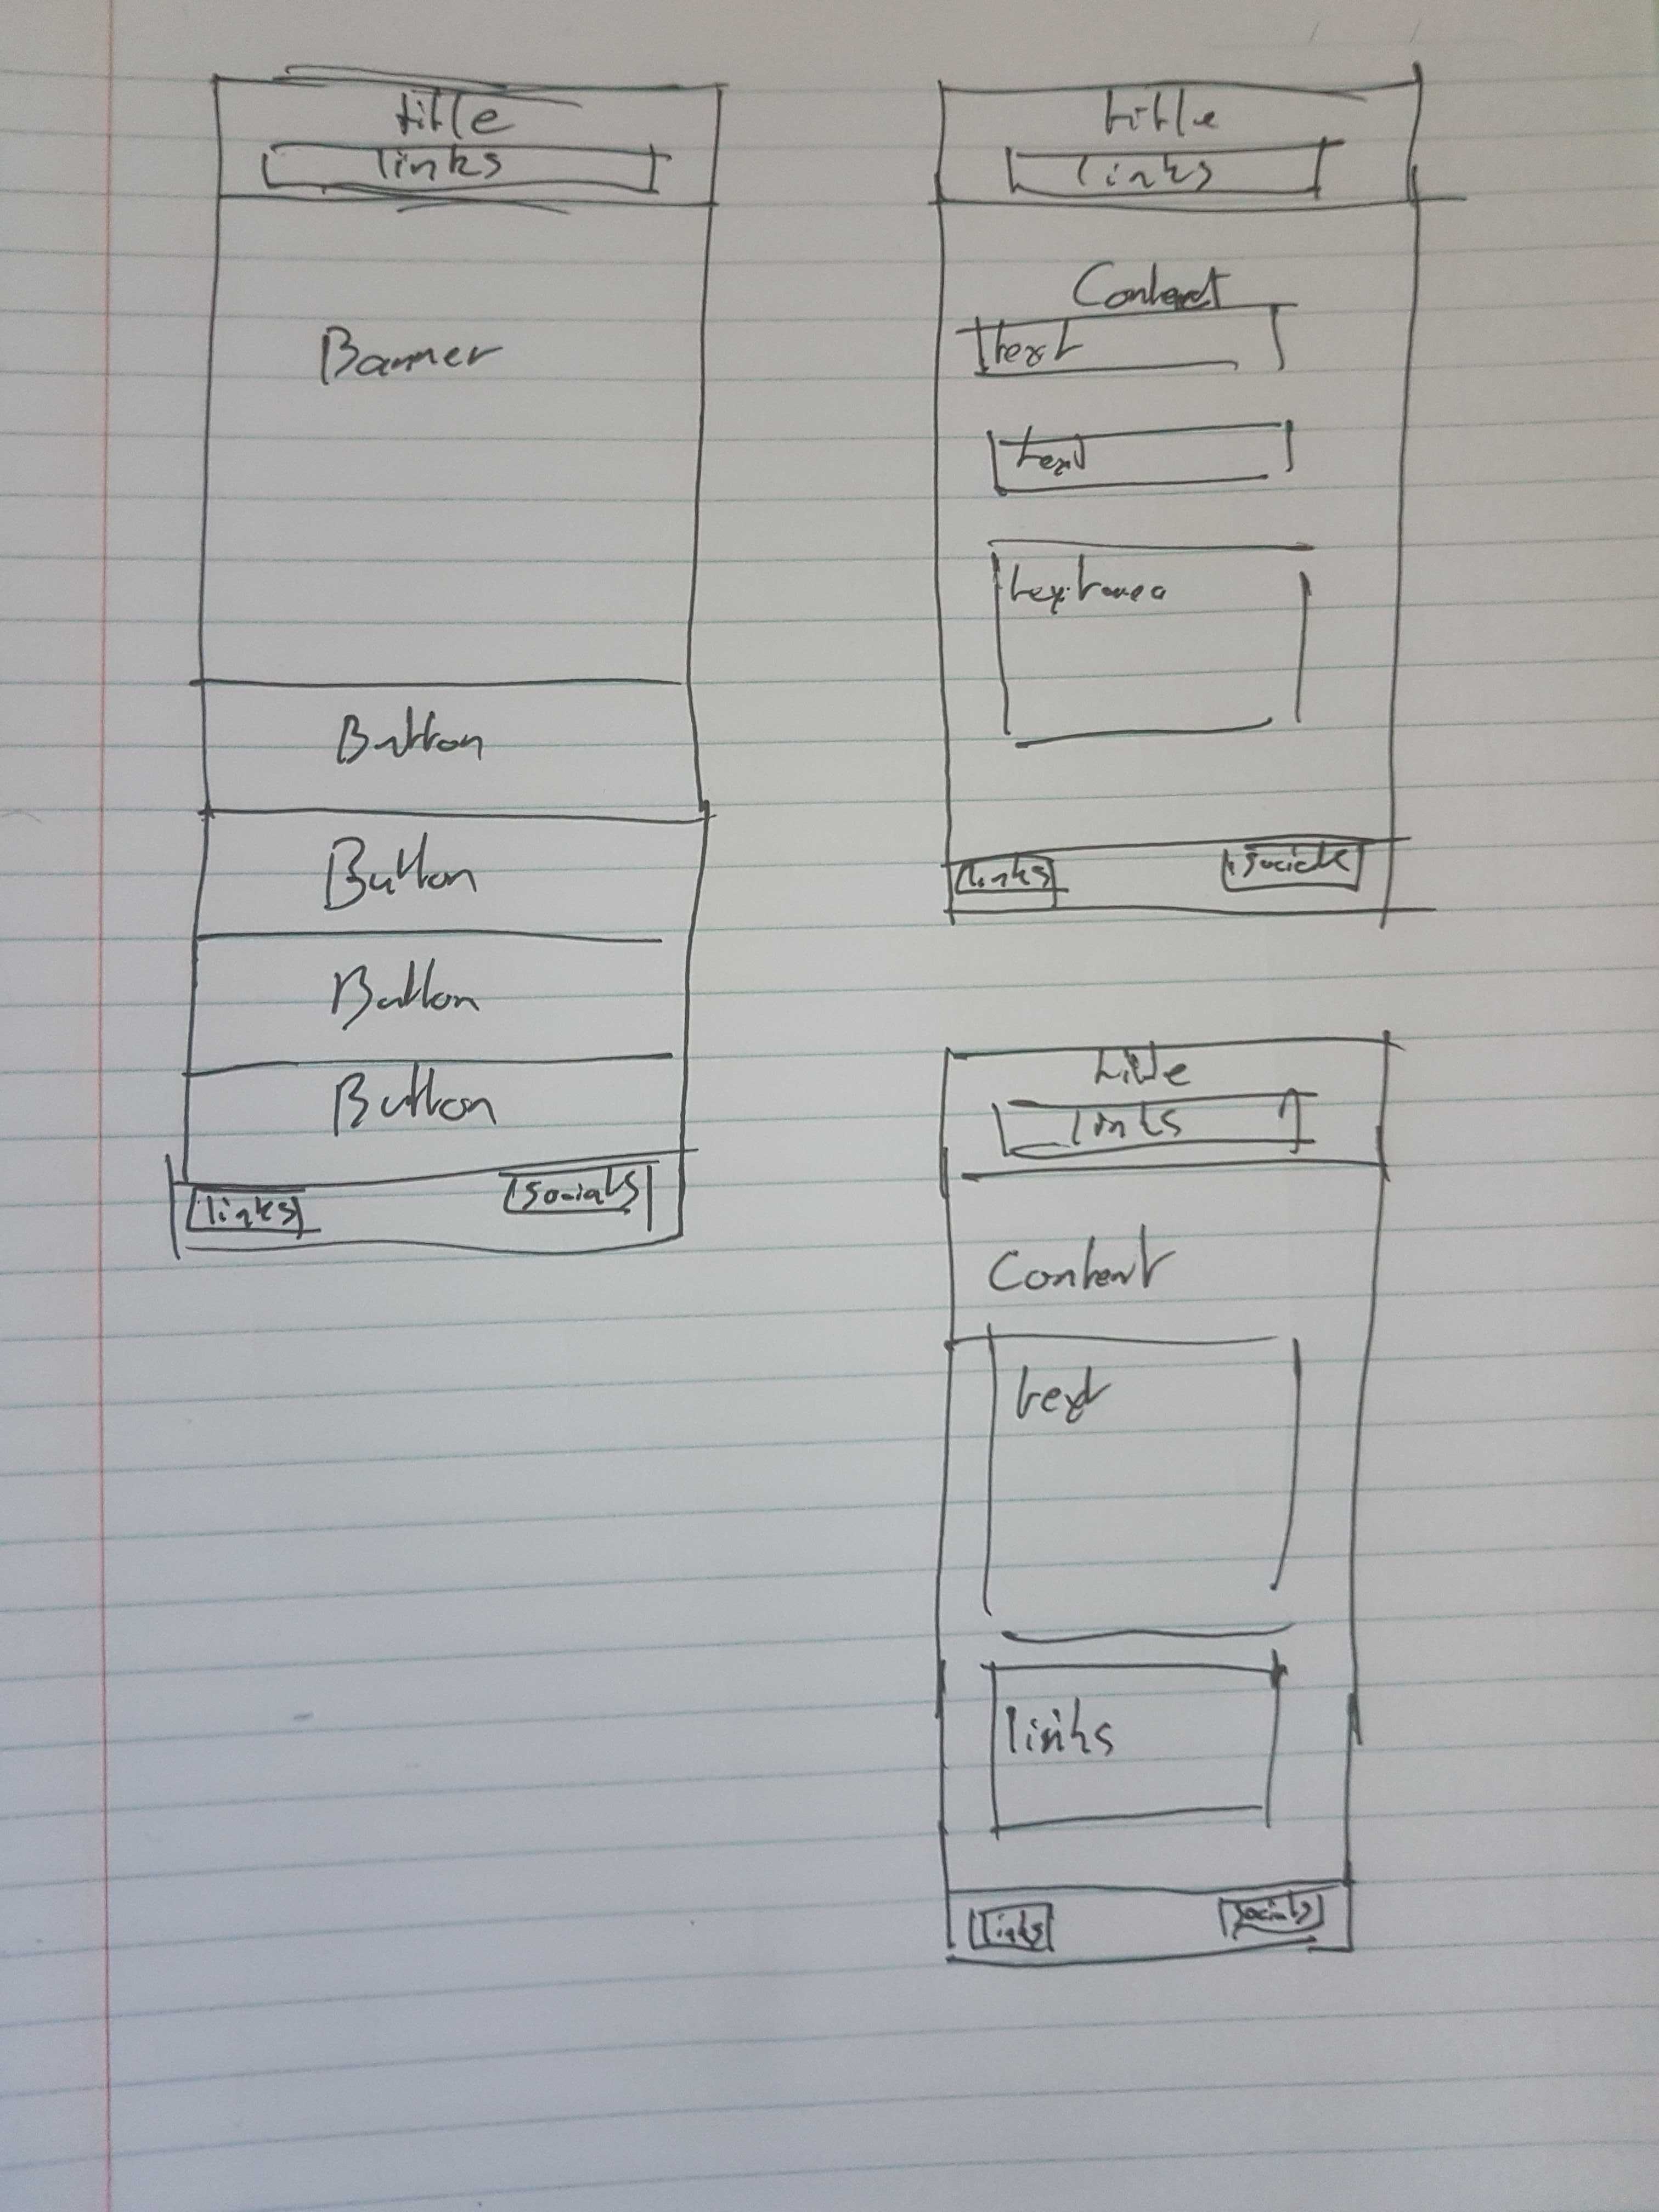 title
links
Banner
Button
Button
Button
Button
links
socials
title
links
Contact
text
text
textarea
links
socials
title
links
Content
text
links
links
socials